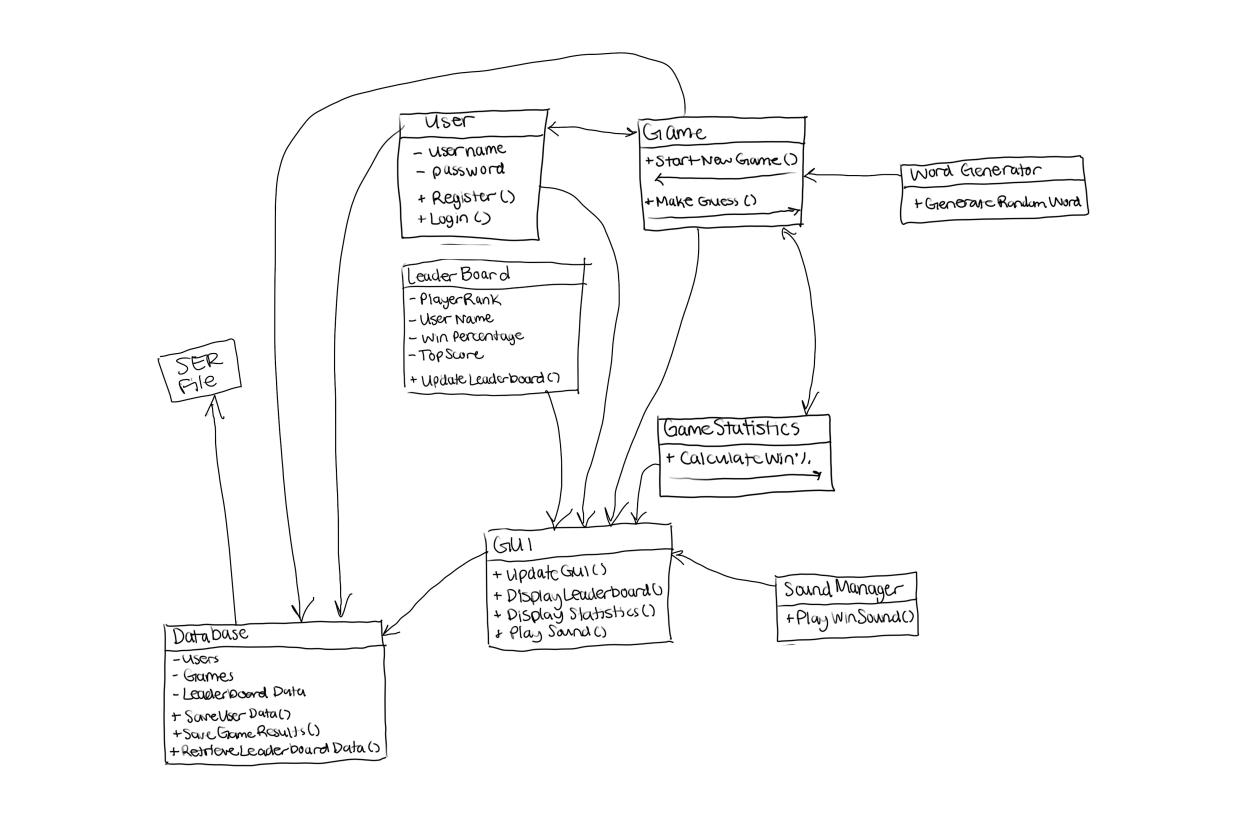 User
- username
- password
+ Register()
+ Login ()
Game
+Start New Game()
+Make Guess()
Word Generator
+Generate Random Word
Leader Board
- PlayerRank
- User Name
- Win Percentage
- TopScore
+ UpdateLeaderboard()
SER
File
GameStatistics
+ CalculateWin%
GUI
+ UpdateGUI()
+ DisplayLeaderboard()
+ Display Statistics()
+ Play Sound()
Sound Manager
+PlayWinSound()
Database
- Users
- Games
- Leaderboard Data
+ SaveUser Data()
+Save Game Results()
+RetrieveLeaderboard Data()